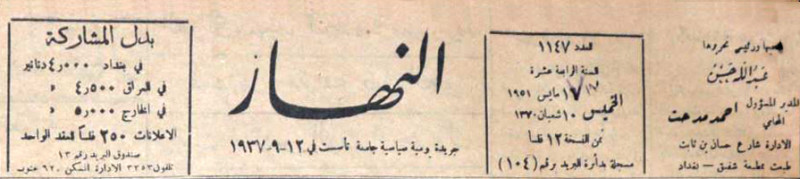 صاحبها ورئيس تحريرها
عبد الله حسن
المدير المسؤول احمد مدحت
المحامي
الادارة شارع حسان بن ثابت
طبعت بمطبعة شفيق - بغداد
العدد ١١٤٧
السنة الرابعة عشرة
١٧ مايس ١٩٥١
١٧
الخميس ١٠ شعبان ١٣٧٠
ثمن النسخة ١٢ فلسا
مسجلة بدائرة البريد برقم (١٠٤)
النهار
جريدة يومية سياسية جامعة تأسست في ١٢-٩-١٩٣٧
بدل المشاركة
في بغداد ٤٫٠٠٠ دنانير
في العراق ٤٫٥٠٠ «
في الخارج ٥٫٠٠٠ «
الاعلانات ٢٥٠ فلسا للعقد الواحد
صندوق البريد رقم ١٣
تلفون ٣٢٥٣ الادارة السكن ٦٢ جنوب